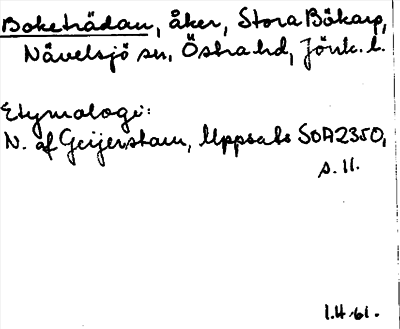 Boketrädan, åker, Stora Bökarp,
Nävelsjö sn, Östra hd, Jönk. l.
Etymologi:
N. af Geijerstam, Uppsats SOA2350,
s. 11.
1.4.61.